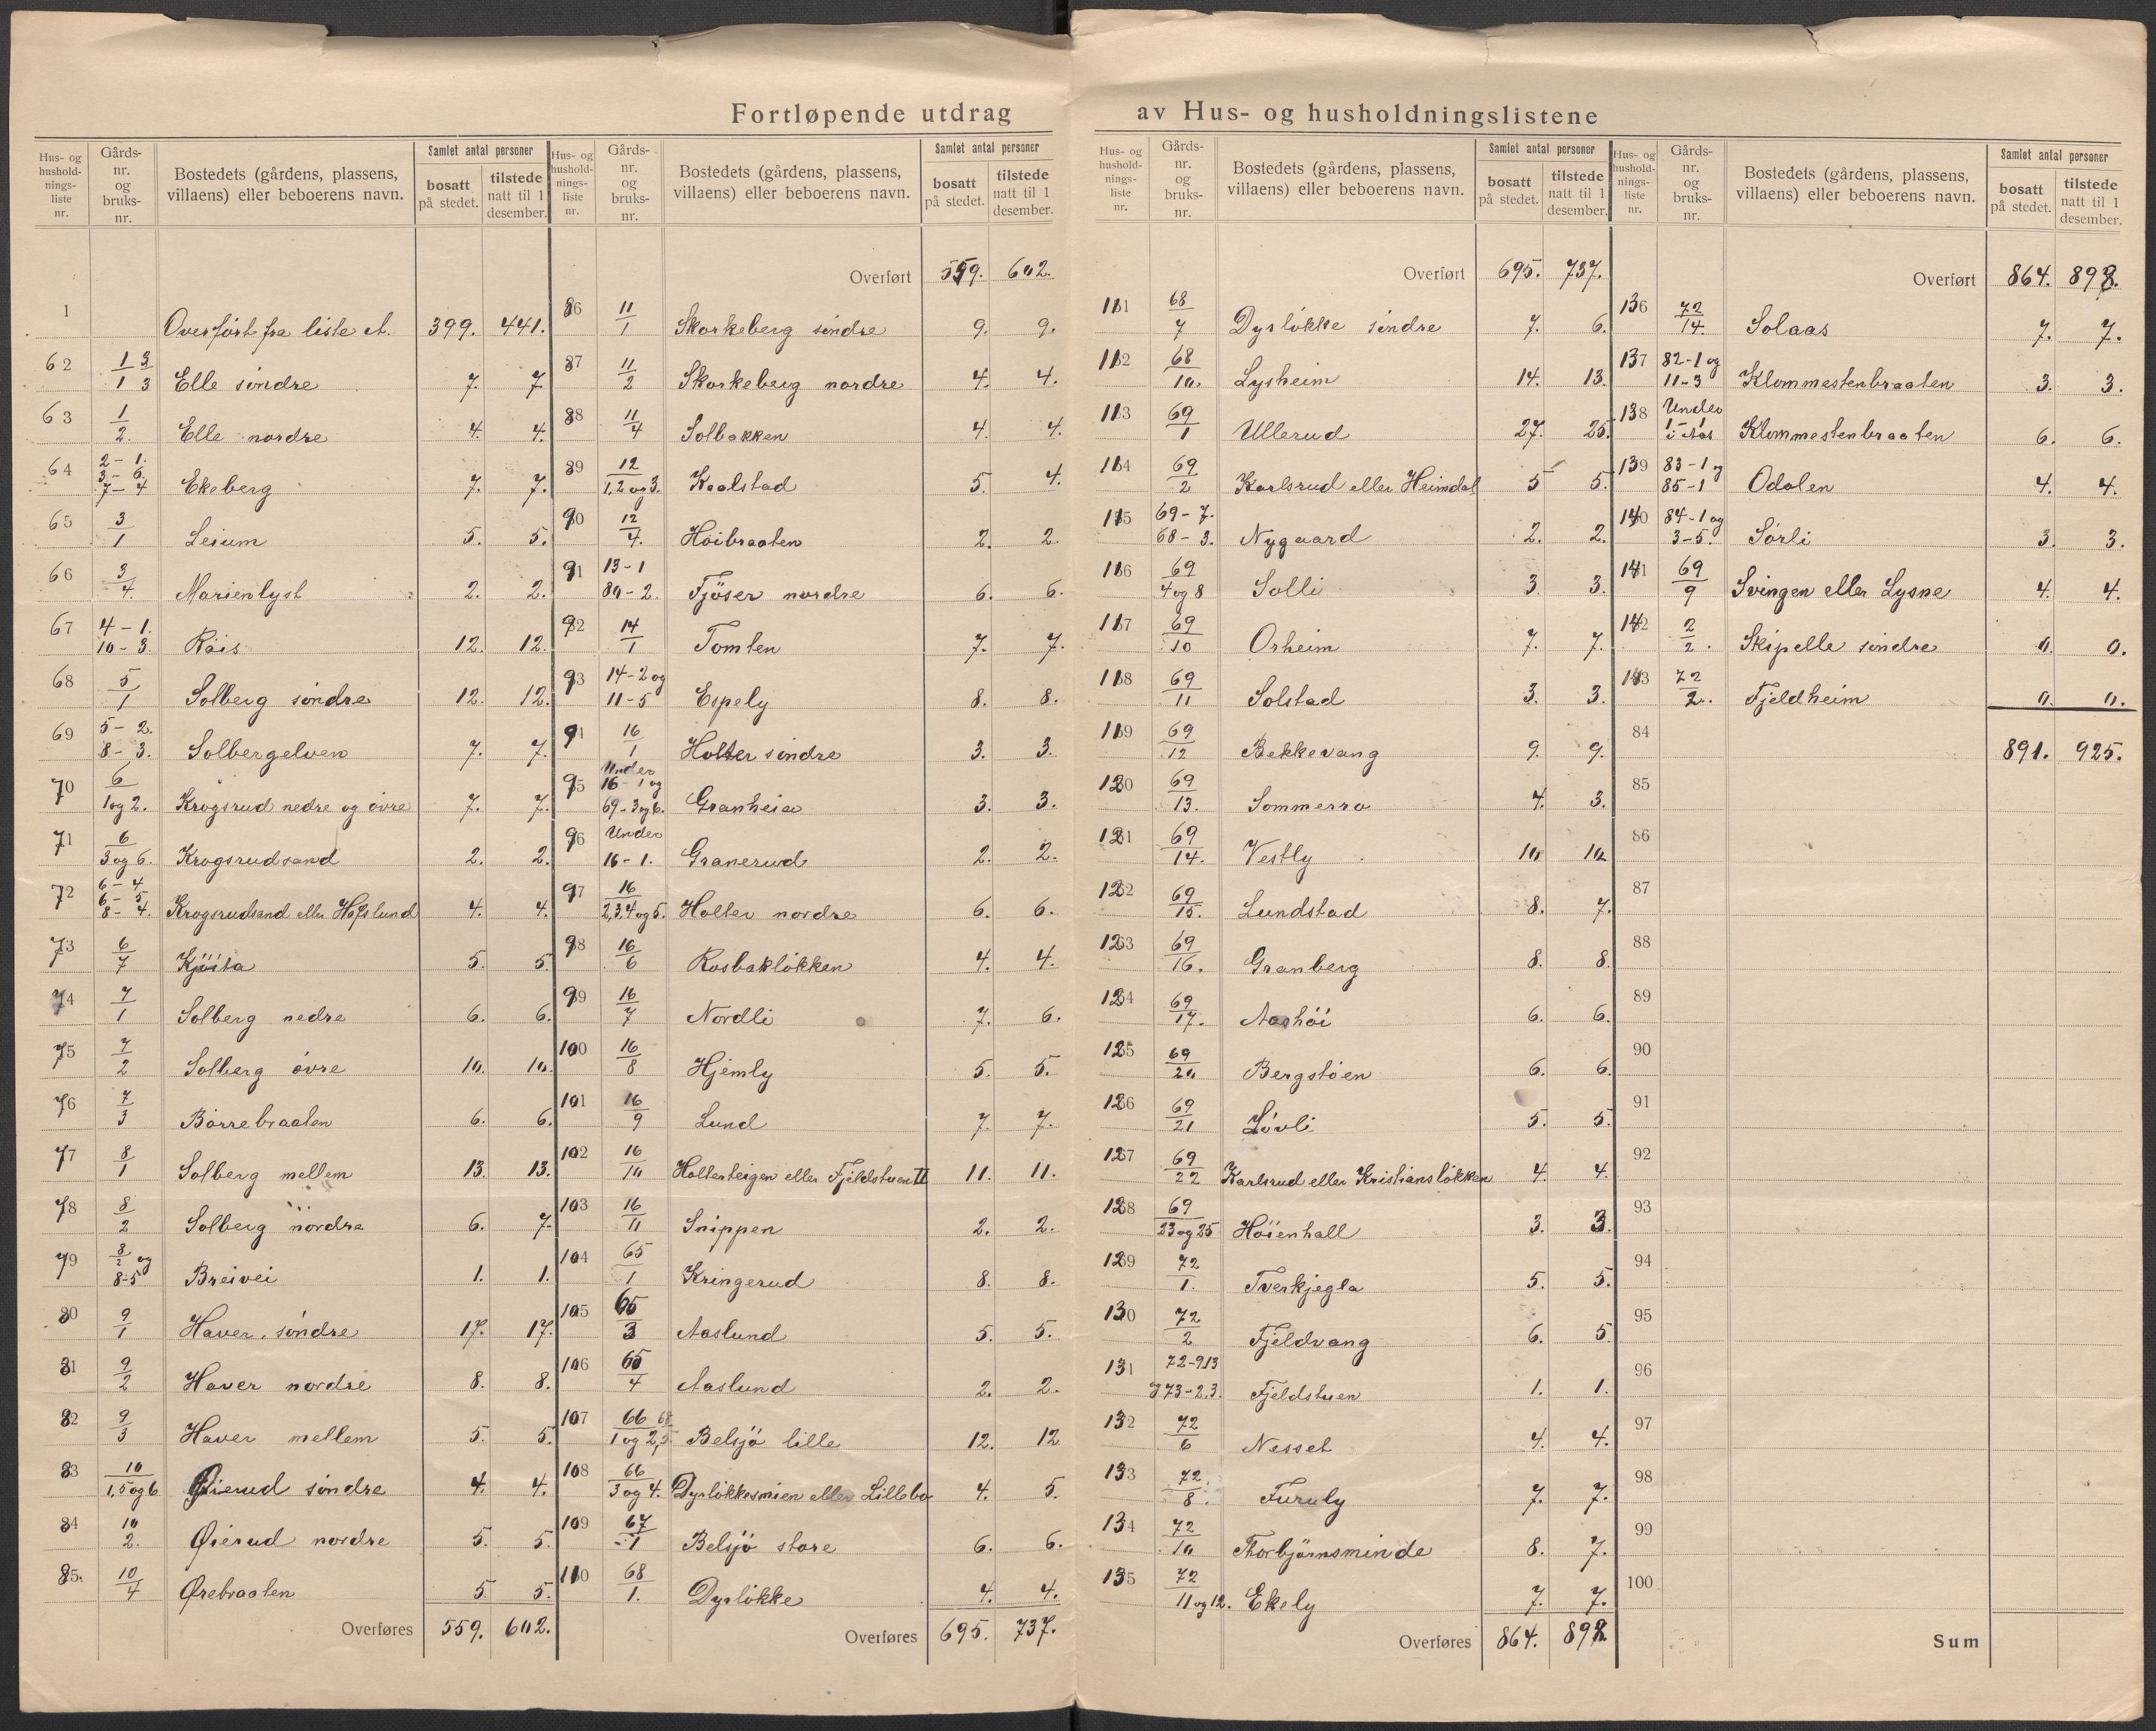 Fortløpende utdrag av Hus- og husholdningslistene
Hus- og husholdnings- liste nr. | Gårds- nr. og bruks- nr. | Bostedets (gårdens, plassens, villaens) eller beboerens navn. | Samlet antal personer | bosatt på stedet. | tilstede natt til 1 desember.
1 Overført fra liste A. 399. 441.
62 1/1 3/3 Elle søndre 7. 7
63 1/2. Elle nordre 4. 4.
64 2-1. 3-6. 7-4 Ekeberg 7. 7.
65 3/1 Leium 5. 5.
66 3/4. Marienlyst 2. 2.
67 4-1. 10-3. Røis 12. 12.
68 5/1 Solberg søndre 12. 12.
69 5-2. 8-3. Solbergelven 7. 7.
70 6/1 og 2. Krogsrud nedre og øvre 7. 7.
71 6/3 og 6. Krogsrudsand 2. 2.
72 6-4. 6-5. 8-4. Krogsrudsand eller Hafslund 4. 4.
73 6/7 Kjøsta 5. 5.
74 7/1 Solberg nedre 6. 6.
75 7/2 Solberg øvre 10. 10.
76 7/3 Børrebraaten 6. 6.
77 8/1 Solberg mellem 13. 13.
78 8/2 Solberg nordre 6. 7.
79 8/2 og 8-5 Breivei 1. 1.
80 9/1 Haver søndre 17. 17.
81 9/2 Haver nordre 8. 8.
82 9/3 Haver mellem 5. 5.
83 10/1,5 og 6 Øierud søndre 4. 4.
84 10/2. Øierud nordre 5. 5.
85. 10/4 Ørebraaten 5. 5.
Overføres 559. 602.
Hus- og husholdnings- liste nr. | Gårds- nr. og bruks- nr. | Bostedets (gårdens, plassens, villaens) eller beboerens navn. | Samlet antal personer | bosatt på stedet. | tilstede natt til 1 desember.
Overført 559. 602.
86 11/1 Skorkeberg søndre 9. 9.
87 11/2 Skorkeberg nordre 4. 4.
88 11/4 Solbakken 4. 4.
89 12/1,2 og 3. Kaalstad 5. 4.
90 12/4. Høibraaten 2. 2.
91 13-1 80-2. Tjøser nordre 6. 6.
92 14/1 Tomten 7. 7.
93 14-2 og 11-5 Espely 8. 8.
94 16/1 Holter søndre 3. 3.
95 Under 16-1 og 69-3 og 6. Granheia 3. 3.
96 Under 16-1. Granerud 2. 2.
97 16/2,3,4 og 5. Holter nordre 6. 6.
98 16/6 Rosbakløkken 4. 4.
99 16/7 Nordli 7. 6.
100 16/8 Hjemly 5. 5.
101 16/9 Lund 7. 7.
102 16/10 Holterteigen eller Fjeldstuen II 11. 11.
103 16/11 Snippen 2. 2.
104 65/1 Kringerud 8. 8.
105 65/3 Aaslund 5. 5.
106 65/4 Aaslund 2. 2.
107 66/1 og 2, 68/5. Belsjø lille 12. 12
108 66/3 og 4. Dyrløkkesmien eller Lillebo 4. 5.
109 67/1 Belsjø store 6. 6.
110 68/1. Dyrløkke 4. 4.
Overføres 695. 737.
Hus- og husholdnings- liste nr. | Gårds- nr. og bruks- nr. | Bostedets (gårdens, plassens, villaens) eller beboerens navn. | Samlet antal personer | bosatt på stedet. | tilstede natt til 1 desember.
Overført 695. 737.
111 68/7 Dyrløkke søndre 7. 6.
112 68/10. Lysheim 14. 13.
113 69/1 Ullerud 27. 25.
114 69/2 Karlsrud eller Heimdal 5 5.
115 69-7. 68-3. Nygaard 2. 2.
116 69/4 og 8 Solli 3. 3.
117 69/10 Orheim 7. 7.
118 69/11 Solstad 3. 3.
119 69/12 Bekkevang 9. 9.
120 69/13. Sommerro 4. 3.
121 69/14. Vestly 10. 10.
122 69/15. Lundstad 8. 7.
123 69/16. Granberg 8. 8.
124 69/17. Aashøi 6. 6.
125 69/20 Bergstøen 6. 6.
126 69/21 Løvli 5. 5.
127 69/22 Karlsrud eller Kristiansløkken 4. 4.
128 69/23 og 25 Høienhall 3. 3.
129 72/1. Tverkjegla 5. 5.
130 72/2 Fjeldvang 6. 5.
131 72-9,13 g 73-2,3. Fjeldstuen 1. 1.
132 72/6 Nesset 4. 4.
133 72/8. Furuly 7. 7.
134 72/10 Thorbjørnsminde 8. 7.
135 72/11 og 12. Ekely 7. 7.
Overføres 864. 898
Hus- og husholdnings- liste nr. | Gårds- nr. og bruks- nr. | Bostedets (gårdens, plassens, villaens) eller beboerens navn. | Samlet antal personer | bosatt på stedet. | tilstede natt til 1 desember.
Overført 864. 898.
136 72/14. Solaas 7. 7.
137 82-1 og 11-3 Klommestenbraaten 3. 3.
138 Under 1-1 i Aas Klommestenbraaten 6. 6.
139 83-1 og 85-1 Odalen 4. 4.
140 84-1 og 3-5. Sørli 3. 3.
141 69/9 Svingen eller Lysne 4. 4.
142 2/2. Skipelle søndre 0. 0.
143 72/2. Fjeldheim 0. 0.
84 891. 925.
85
86
87
88
89
90
91
92
93
94
95
96
97
98
99
100
Sum